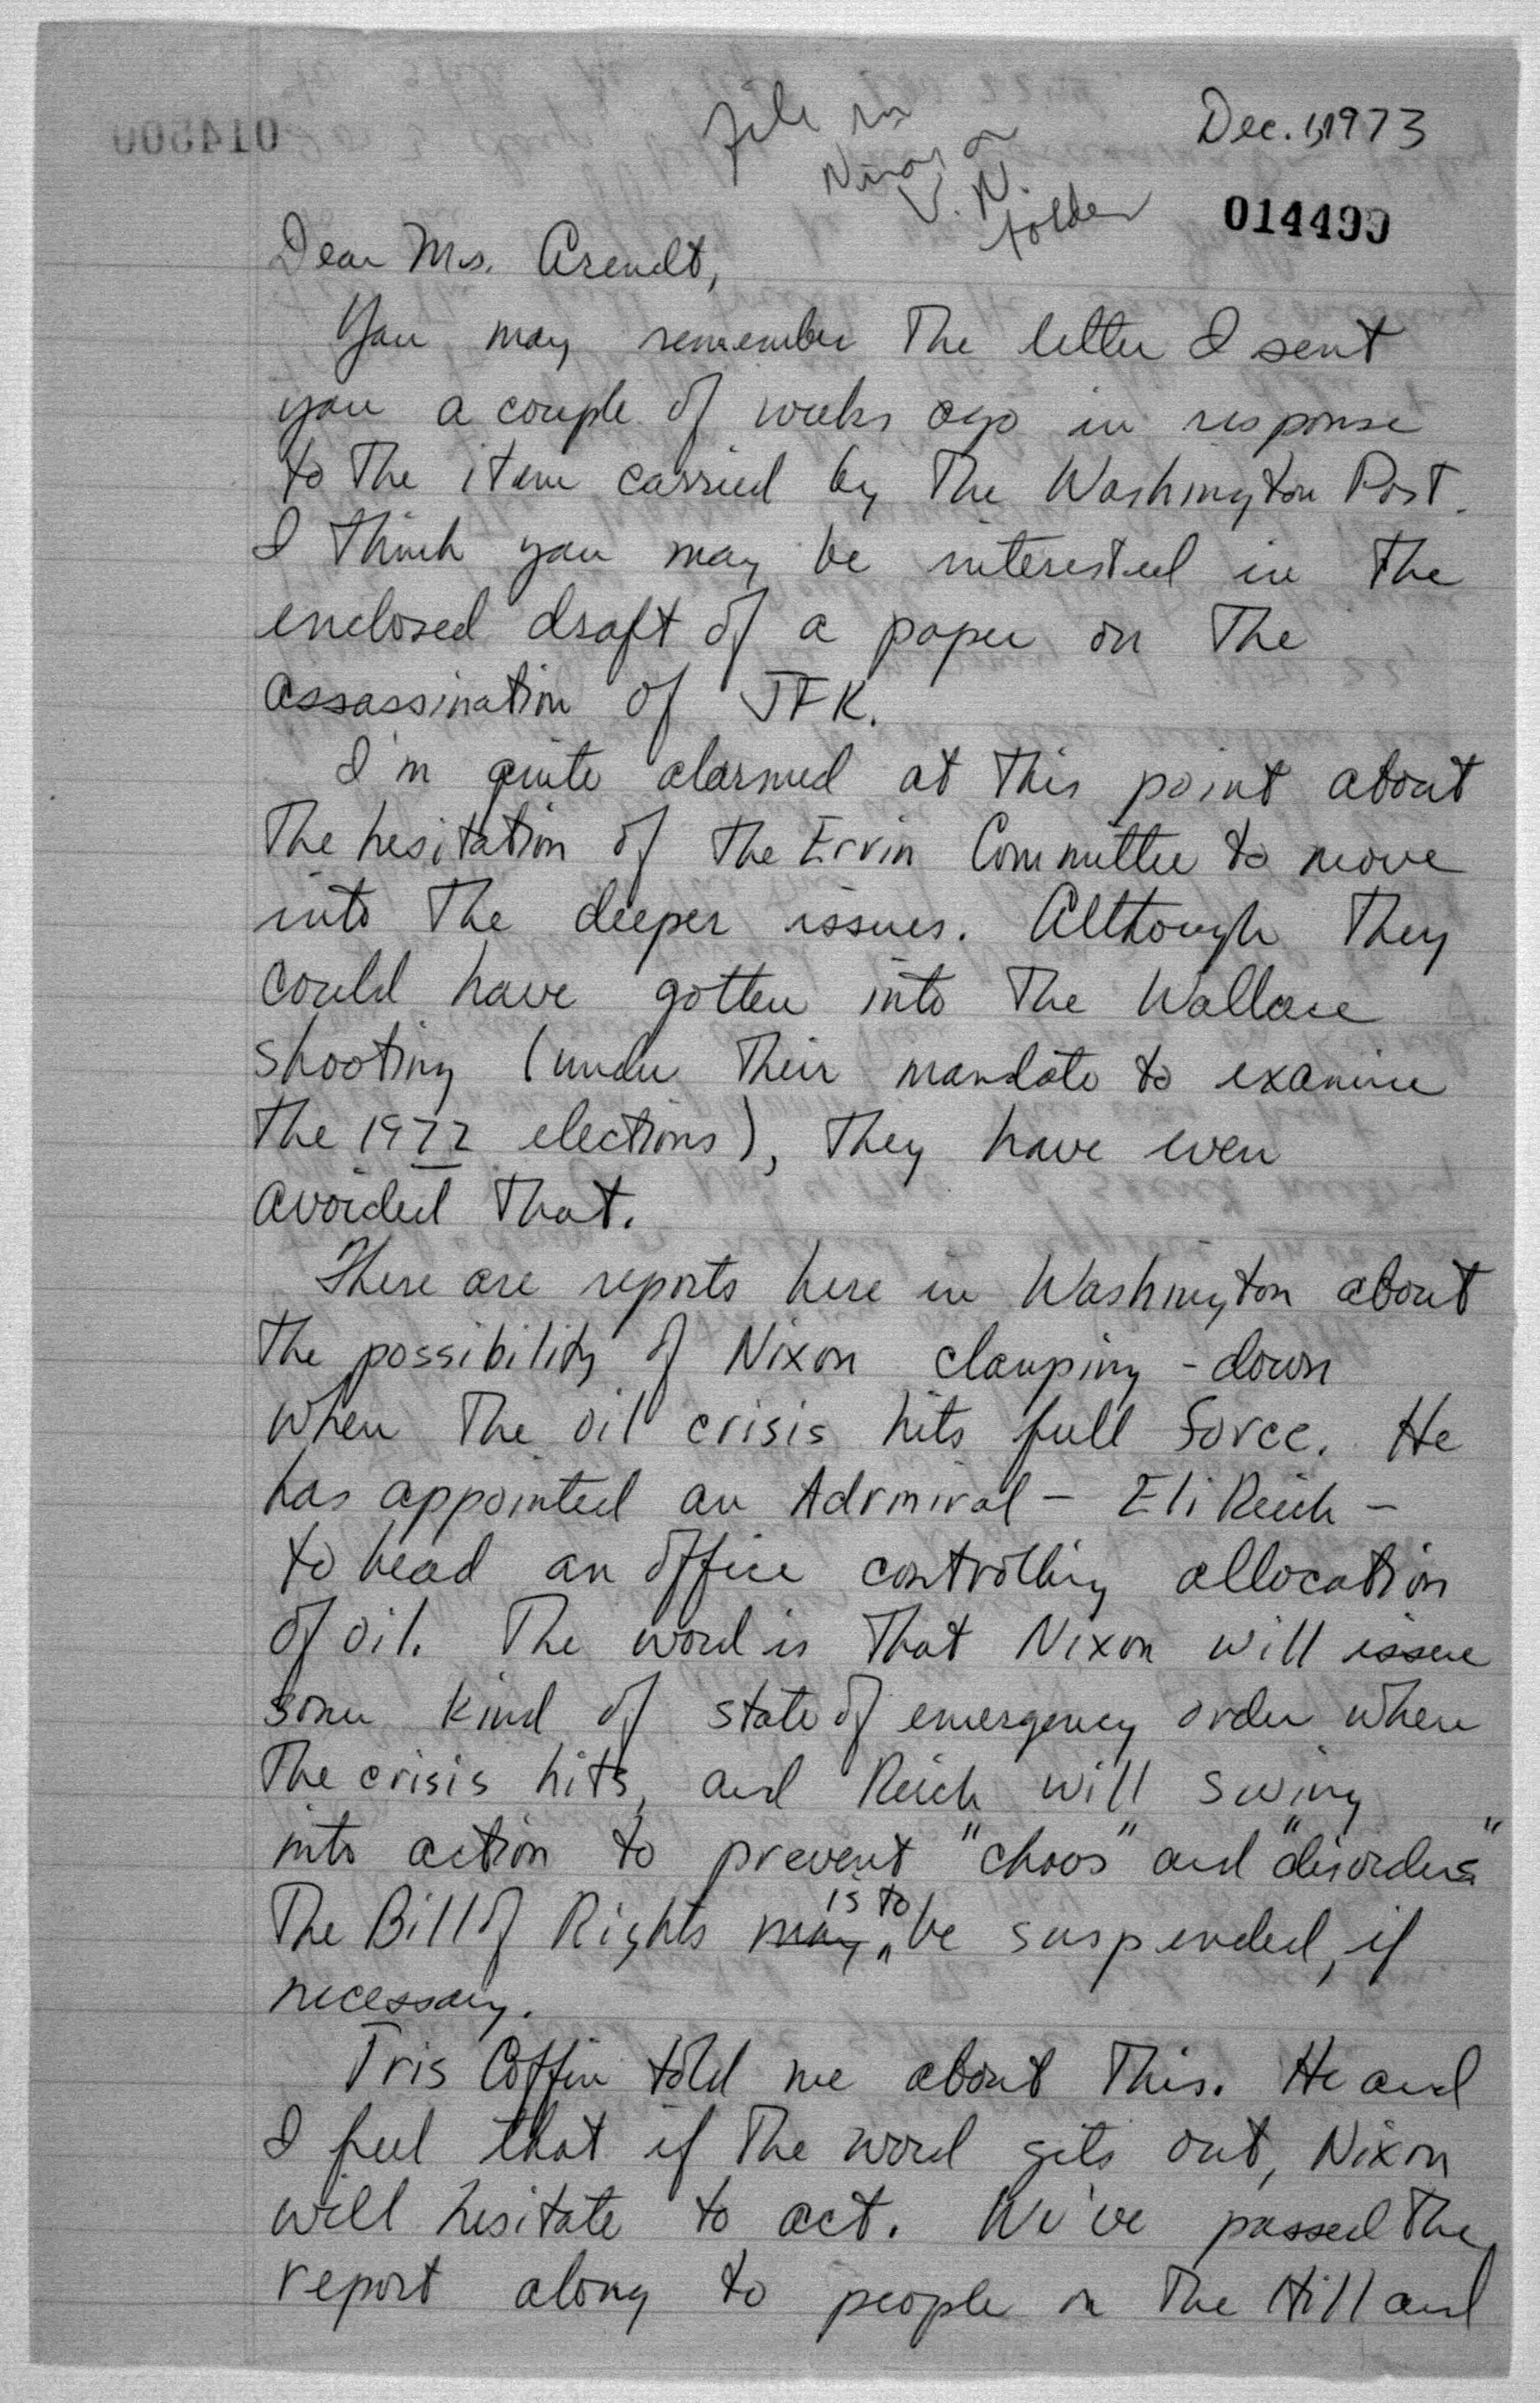 Dec. 1, 1973
File in
Nixon or
V. N.
folder
014499
Dear Mrs. Arendt,
You may remember The letter I sent
you a couple of weeks ago in response
to The item carried by The Washington Post.
I Think you may be interested in The
enclosed draft of a paper on The
assassination of JFK.
I'm quite alarmed at This point about
The hesitation of The Ervin Committee to move
into The deeper issues. Although They
could have gotten into The Wallace
shooting (under Their mandate to examine
The 1972 elections), They have even
avoided That.
There are reports here in Washington about
The possibility of Nixon clamping-down
when The oil crisis hits full force. He
has appointed an Admiral - Eli Reich -
to head an office controlling allocation
of oil. The word is That Nixon will issue
some kind of state of emergency order when
The crisis hits, and Reich will swing
into action to prevent "chaos" and "disorders"
The Bill of Rights may is to be suspended, if
necessary.
Tris Coffin told me about This. He and
I feel that if The word gets out, Nixon
will hesitate to act. We've passed The
report along to people on The Hill and